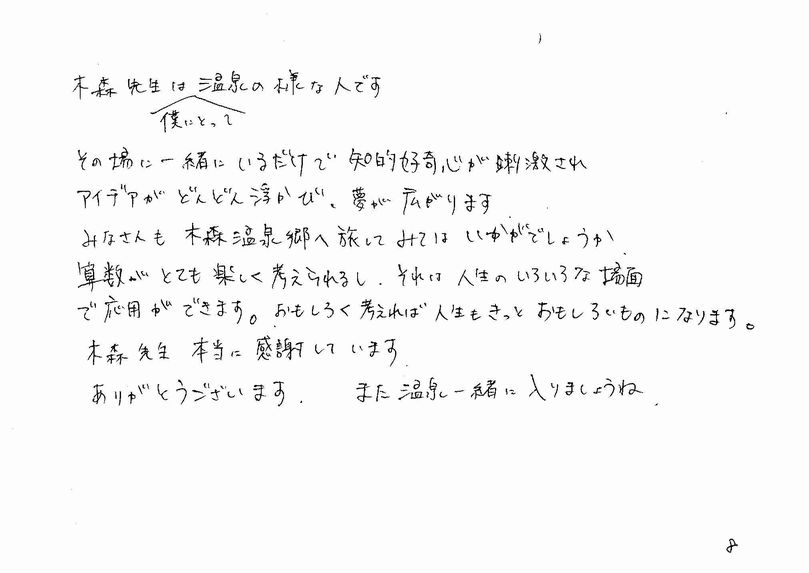 木森先生は温泉の様な人です
僕にとって
その場に一緒にいるだけで 知的好奇心が刺激され
アイデアが どんどん浮かび、夢が広がります
みなさんも 木森温泉郷へ旅してみては いかがでしょうか
算数が とても楽しく考えられるし、それは人生のいろいろな場面
で応用ができます。おもしろく考えれば人生もきっと おもしろいものになります。
木森先生 本当に感謝しています.
ありがとうございます. また温泉一緒に入りましょうね.
8